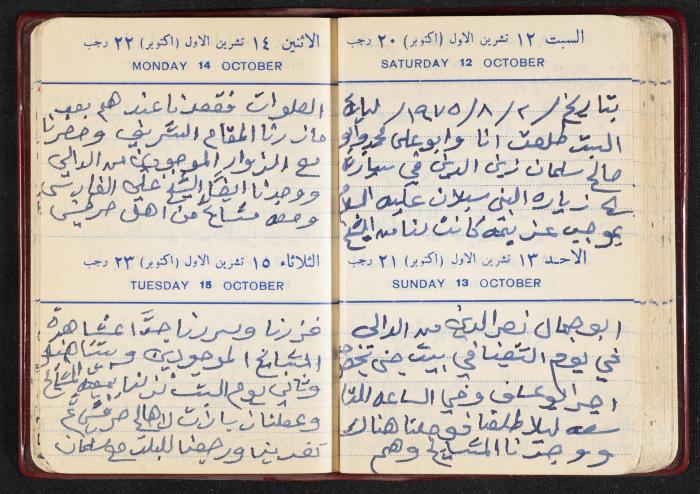 السبت ١٢ تشرين الاول (اكتوبر) ٢٠ رجب
SATURDAY 12 OCTOBER
بتاريخ / ٢ / ٨ / ١٩٧٥ / ليلة
السبت طلعت انا وابو علي محمد وابو
صالح سلمان زين الدين في سيارة
زيارة النبي سبلان عليه السلام
بموجب عزيمة كانت لنا من الشيخ
الاحد ١٣ تشرين الاول (اكتوبر) ٢١ رجب
SUNDAY 13 OCTOBER
ابو جمال نصر الدين من الدالي
في يوم التقينا في بيت جن
وفي الساعة
ليلا طلعنا فوصلنا هناك
ووجدنا المشايخ وهم
الاثنين ١٤ تشرين الاول (اكتوبر) ٢٢ رجب
MONDAY 14 OCTOBER
الصلوات فقعدنا عندهم بعد
ما زرنا المقام الشريف وحضرنا
مع الزوار الموجودين من الدالي
ووجدنا ايضا الشيخ علي الفارس
ومعه مشايخ من اهل حرفيش
الثلاثاء ١٥ تشرين الاول (اكتوبر) ٢٣ رجب
TUESDAY 15 OCTOBER
فزرنا وسررنا جدا عشاهدة
المشايخ الموجودين
وثاني يوم السبت نزلنا
وعملنا زيارت لاهالي حرفيش
تغدينا ورجعنا للبلد مع سلمان